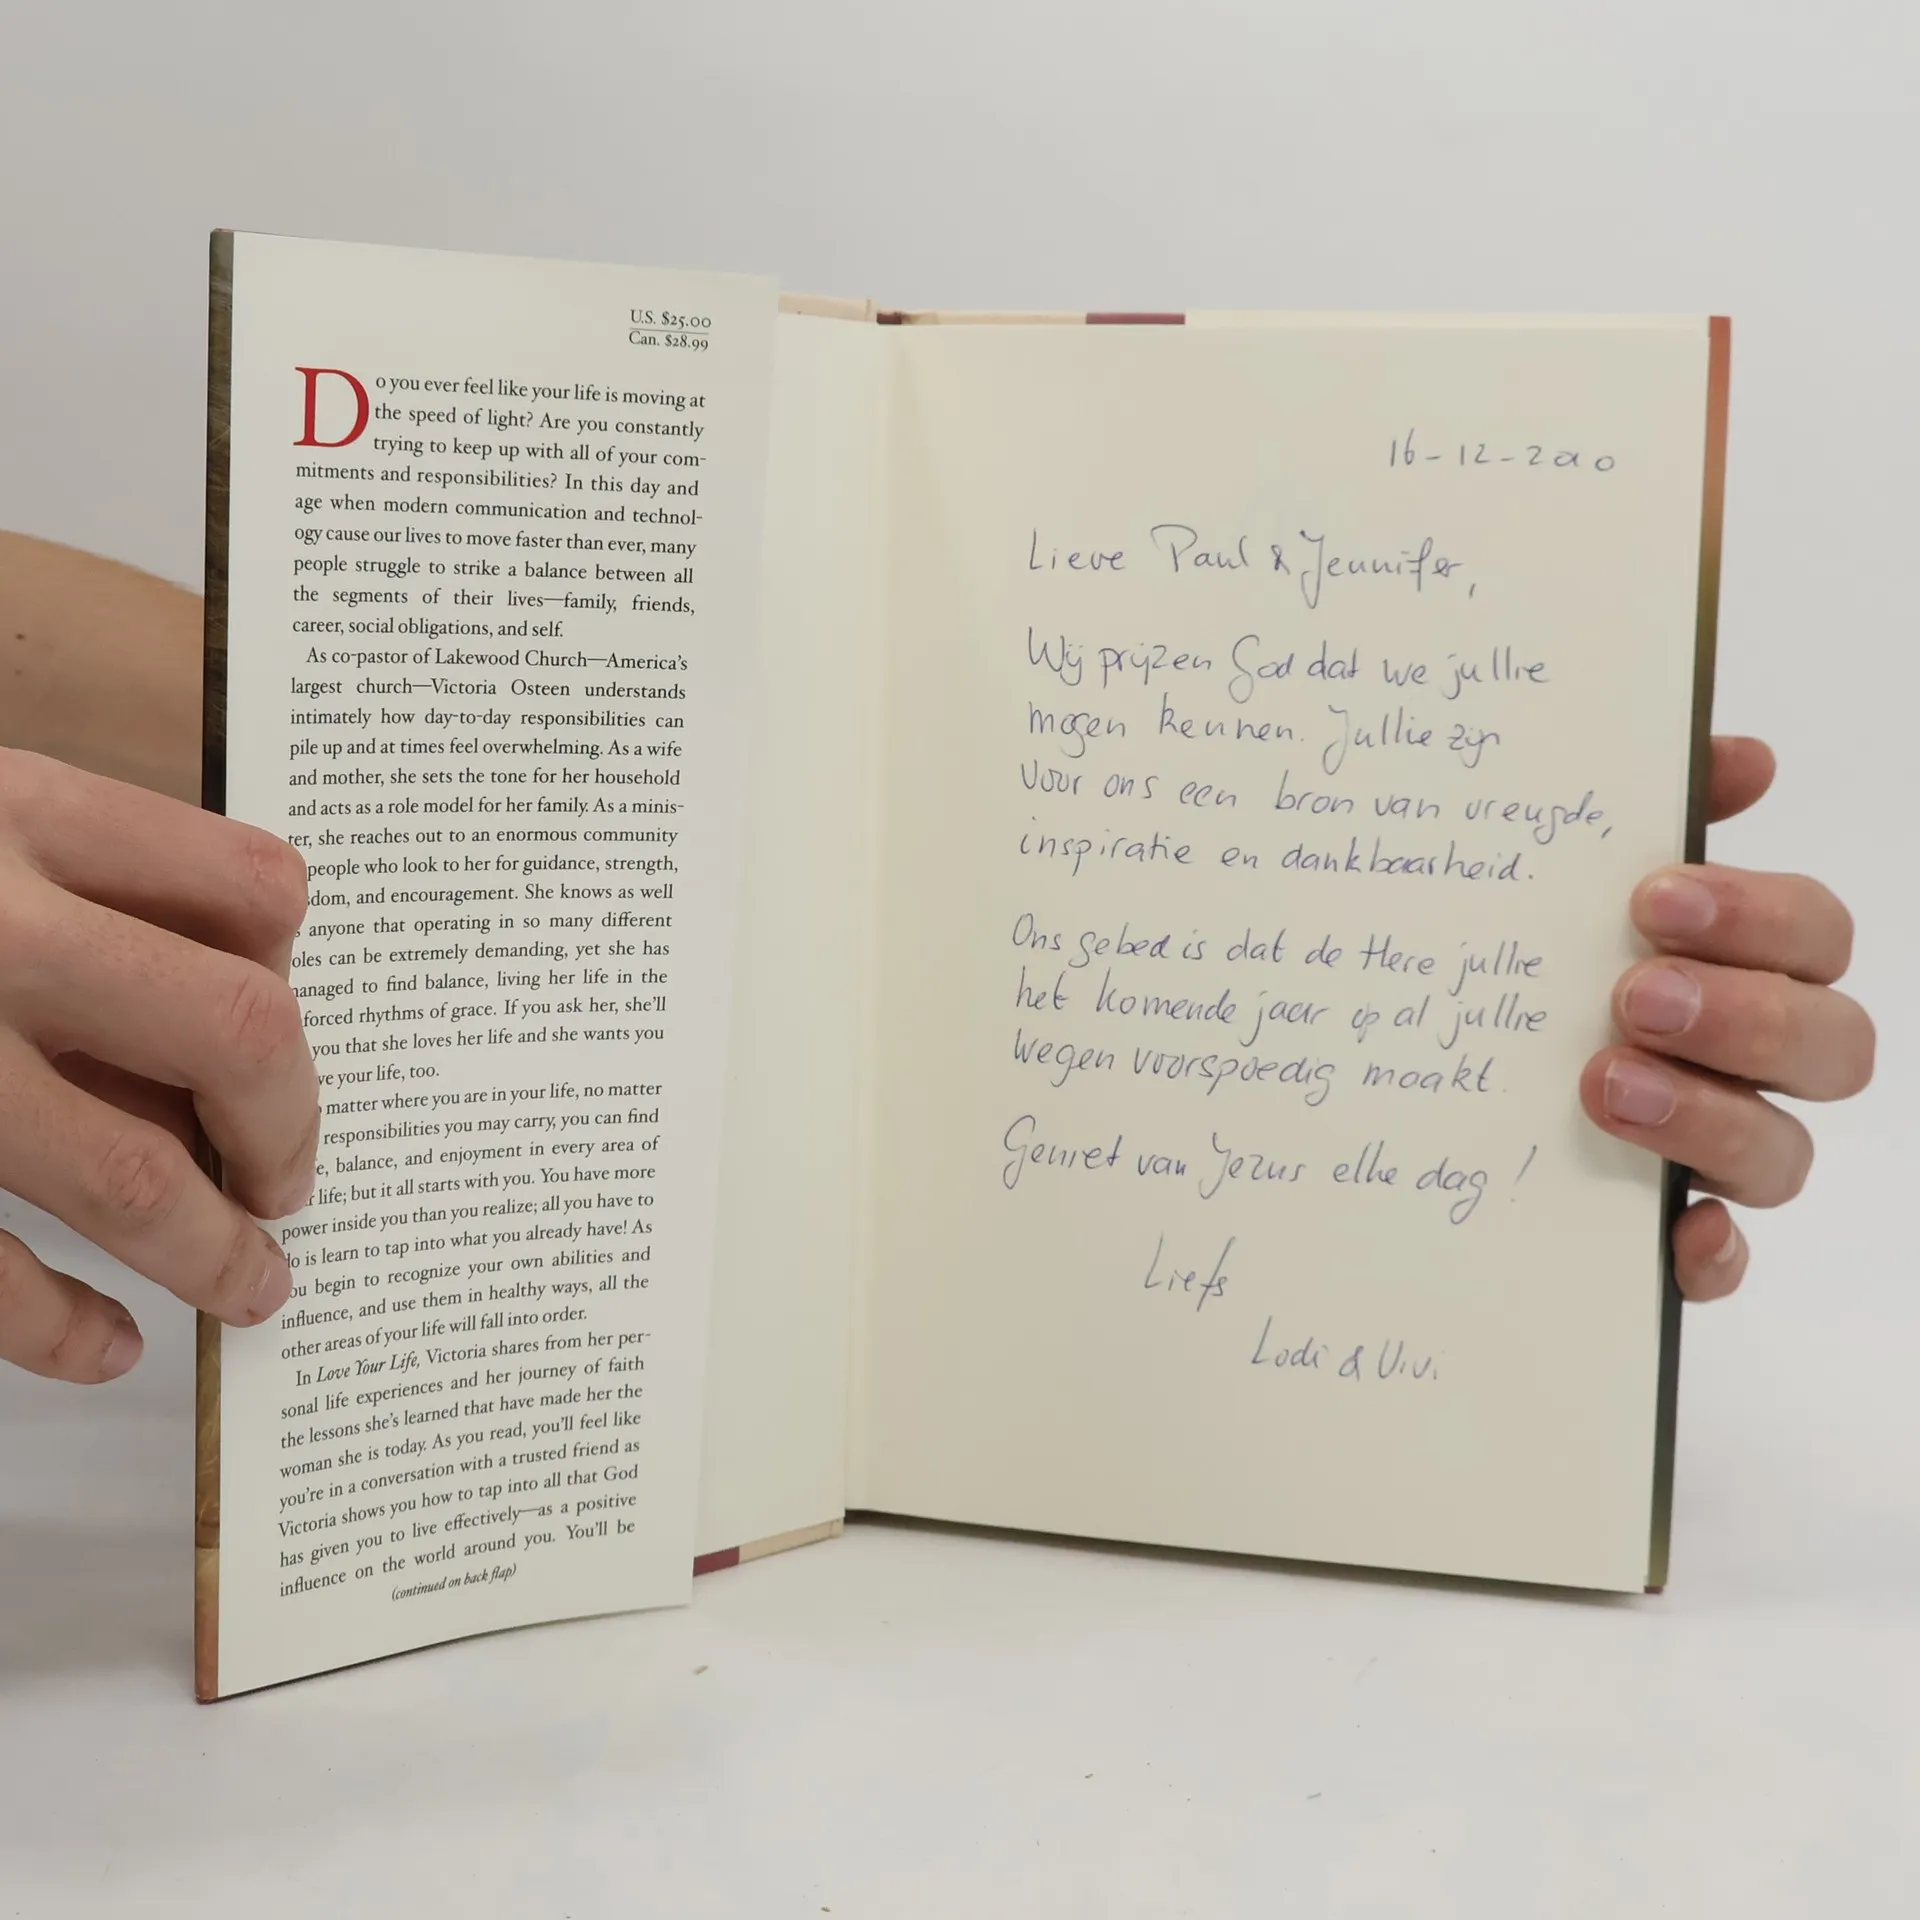 U.S. $25.00
Can. $28.99
Do you ever feel like your life is moving at
the speed of light? Are you constantly
trying to keep up with all of your com-
mitments and responsibilities? In this day and
age when modern communication and technol-
ogy cause our lives to move faster than ever, many
people struggle to strike a balance between all
the segments of their lives—family, friends,
career, social obligations, and self.
As co-pastor of Lakewood Church—America's
largest church—Victoria Osteen understands
intimately how day-to-day responsibilities can
pile up and at times feel overwhelming. As a wife
and mother, she sets the tone for her household
and acts as a role model for her family. As a minis-
ter, she reaches out to an enormous community
people who look to her for guidance, strength,
dom, and encouragement. She knows as well
anyone that operating in so many different
oles can be extremely demanding, yet she has
anaged to find balance, living her life in the
forced rhythms of grace. If you ask her, she'll
you that she loves her life and she wants you
ve your life, too.
matter where you are in your life, no matter
responsibilities you may carry, you can find
e, balance, and enjoyment in every area of
r life; but it all starts with you. You have more
power inside you than you realize; all you have to
do is learn to tap into what you already have! As
ou begin to recognize your own abilities and
influence, and use them in healthy ways, all the
other areas of your life will fall into order.
In Love Your Life, Victoria shares from her per-
sonal life experiences and her journey of faith
the lessons she's learned that have made her the
woman she is today. As you read, you'll feel like
you're in a conversation with a trusted friend as
Victoria shows you how to tap into all that God
has given you to live effectively—as a positive
influence on the world around you. You'll be
(continued on back flap)
16-12-2010
Lieve Paul & Jennifer,
Wij prijzen God dat we jullie
mogen kennen. Jullie zijn
voor ons een bron van vreugde,
inspiratie en dankbaarheid.
Ons gebed is dat de Here jullie
het komende jaar op al jullie
wegen voorspoedig maakt.
Geniet van Jezus elke dag!
Liefs
Lodi & Vivi